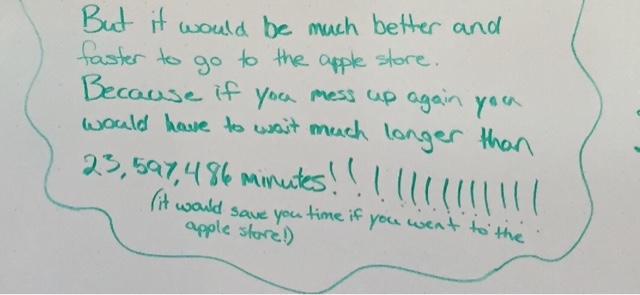 But it would be much better and
faster to go to the apple store.
Because if you mess up again you
would have to wait much longer than
23,597,486 minutes!!!!!!!!!!!!!!
(it would save you time if you went to the
apple store!)